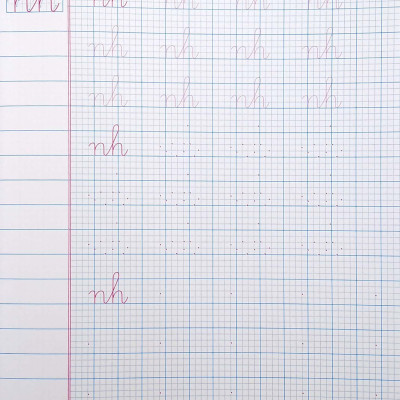 nh nh nh nh nh
nh nh nh nh
nh nh nh nh
nh
nh